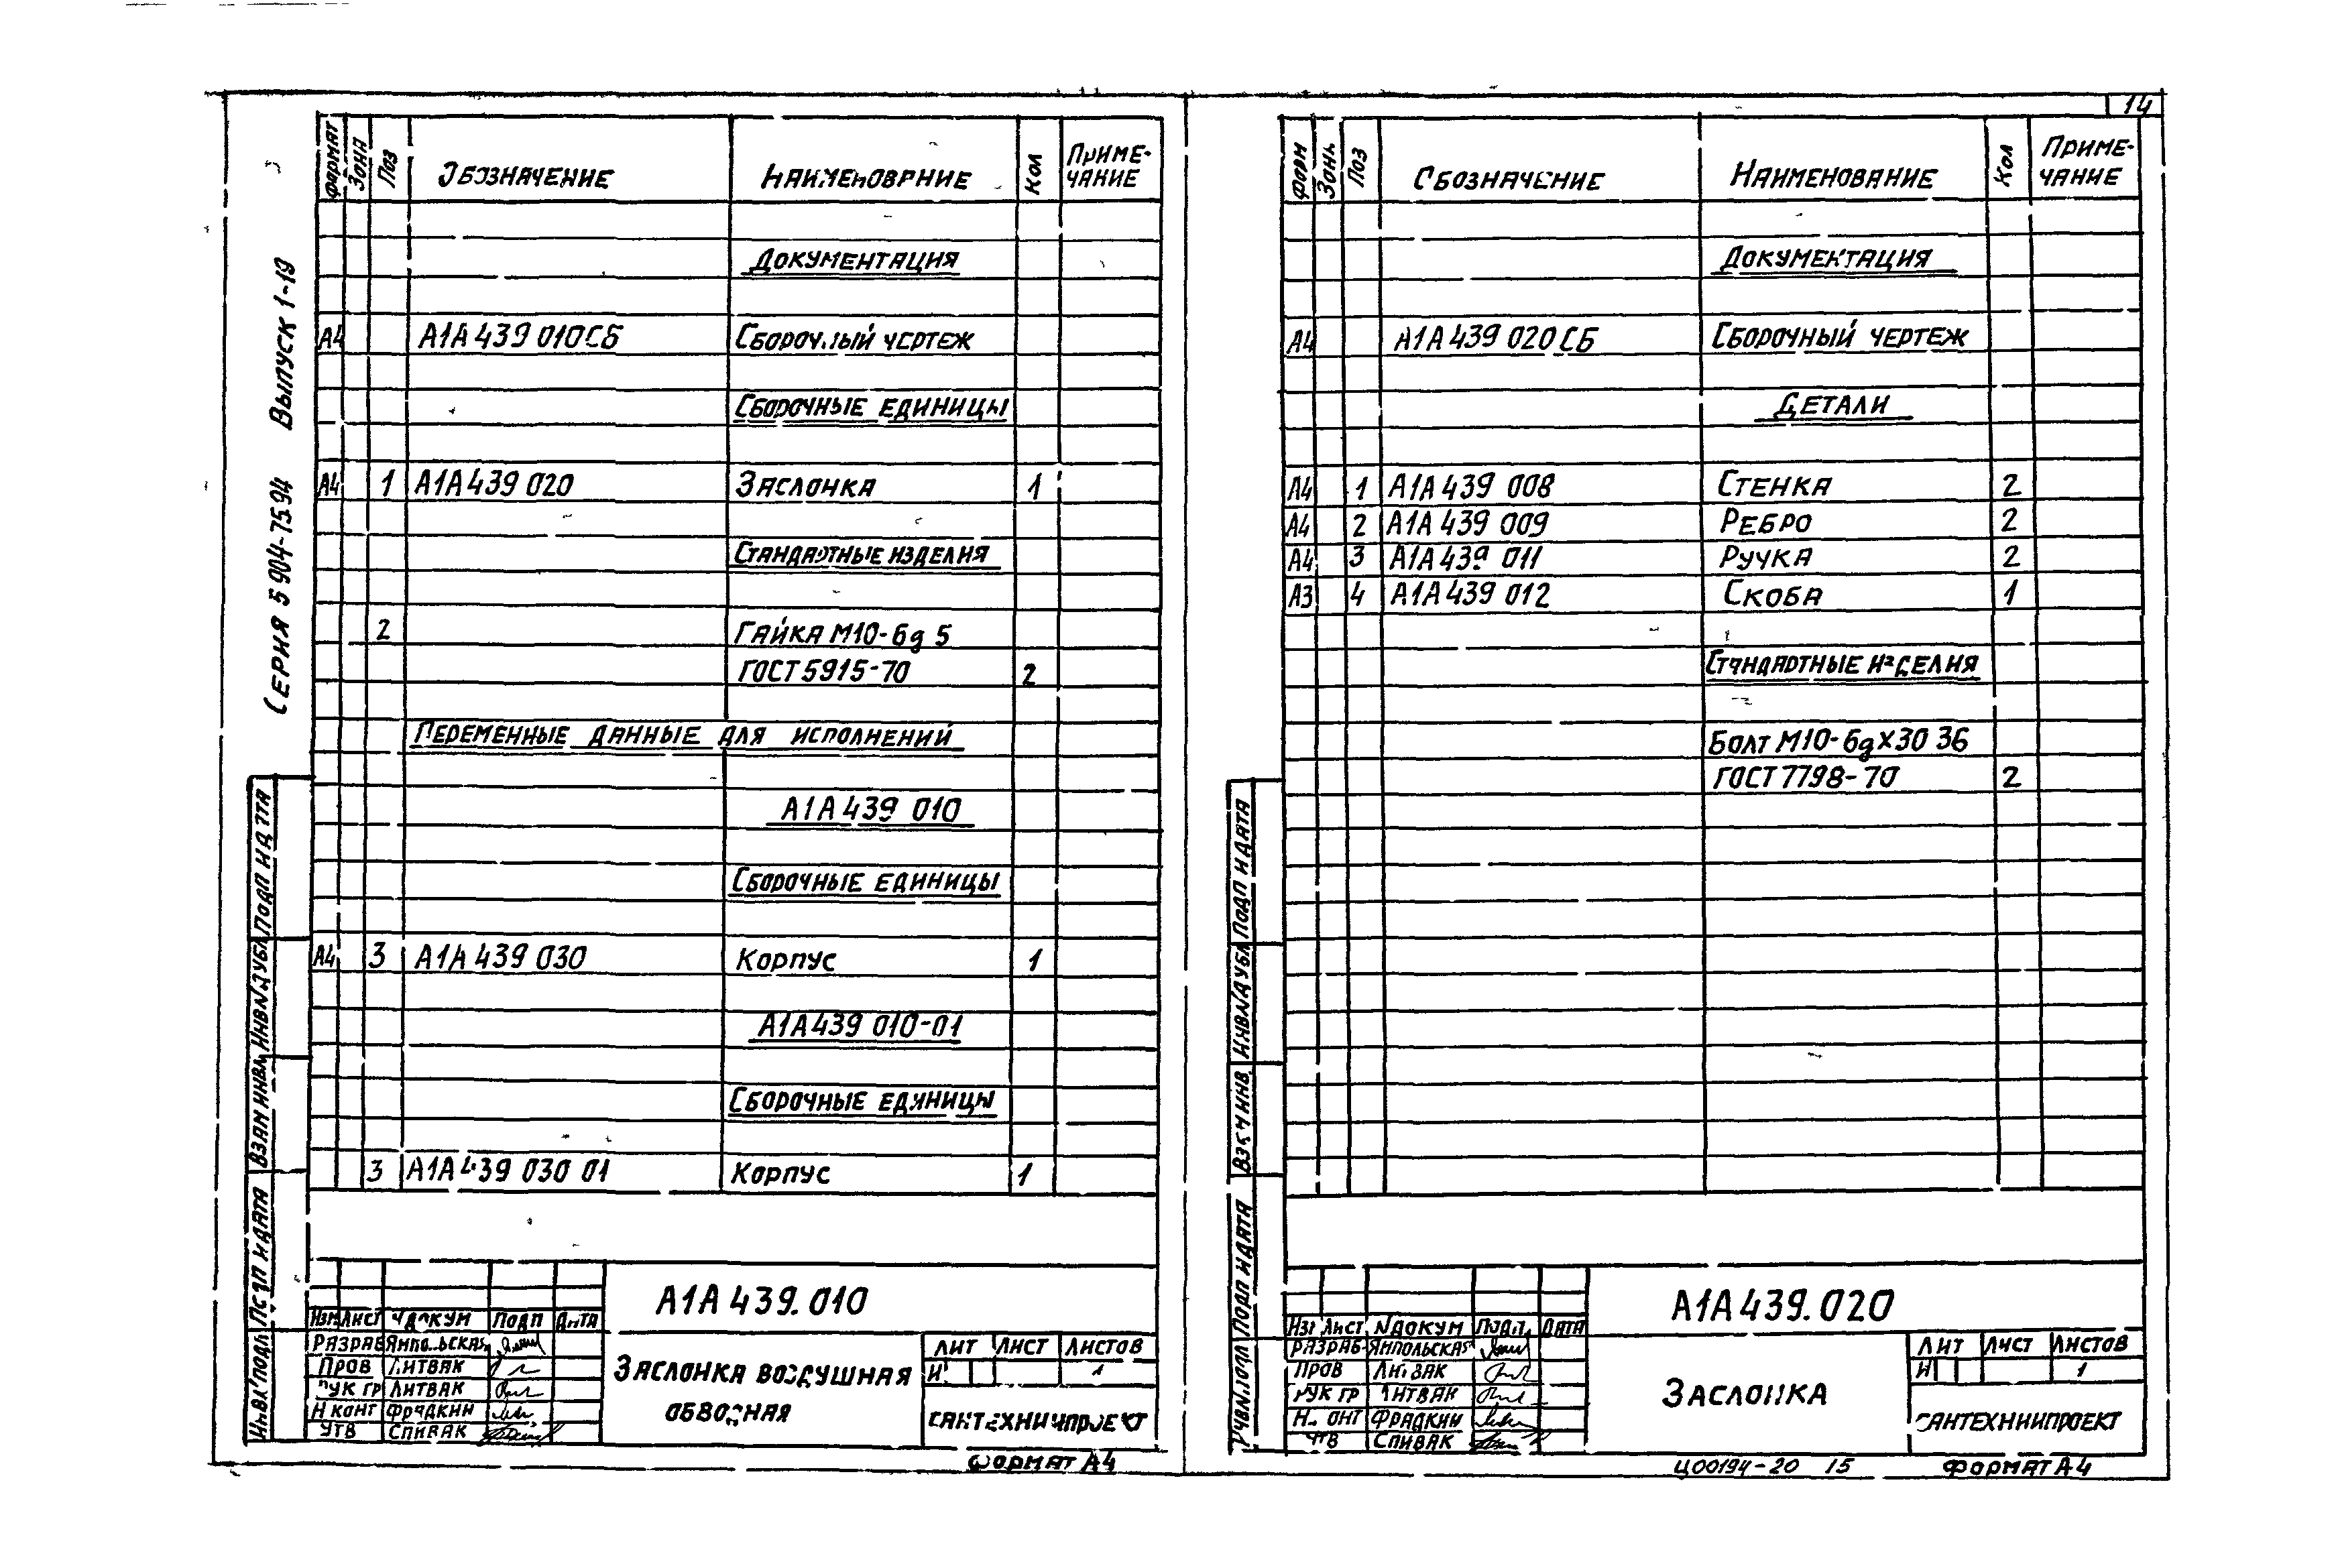 14
Серия 5 904-75 94 Выпуск 1-19
Формат Зона Поз Обозначение Наименование Кол Приме-
чание
Документация
А4 А1А 439 010 СБ Сборочный чертеж
Сборочные единицы
А4 1 А1А 439 020 Заслонка 1
Стандартные изделия
2 Гайка М10-6g 5
ГОСТ 5915-70 2
Переменные данные для исполнений
А1А 439 010
Сборочные единицы
А4 3 А1А 439 030 Корпус 1
А1А 439 010-01
Сборочные единицы
3 А1А 439 030 01 Корпус 1
Подп и дата
Инв № дубл
Взам инв №
Подп и дата
Инв № подл
Изм Лист № докум Подп Дата
Разраб Ямпольская
Пров Литвак
Рук гр Литвак
Н конт Фрадкин
Утв Спивак
А1А 439. 010
Заслонка воздушная
обводная
Лит Лист Листов
И 1
Сантехниипроект
Формат А4
Форм Зона Поз Обозначение Наименование Кол Приме-
чание
Документация
А4 А1А 439 020 СБ Сборочный чертеж
Детали
А4 1 А1А 439 008 Стенка 2
А4 2 А1А 439 009 Ребро 2
А4 3 А1А 439 011 Ручка 2
А3 4 А1А 439 012 Скоба 1
Стандартные изделия
Болт М10-6gх30 36
ГОСТ 7798-70 2
Подп и дата
Инв № дубл
Взам инв
Подп и дата
Инв № подл
Изм Лист № докум Подп. Дата
Разраб Ямпольская
Пров Литвак
Рук гр Литвак
Н. конт Фрадкин
Утв Спивак
А1А 439. 020
Заслонка
Лит Лист Листов
И 1
Сантехниипроект
Ц00194-20 15
Формат А4